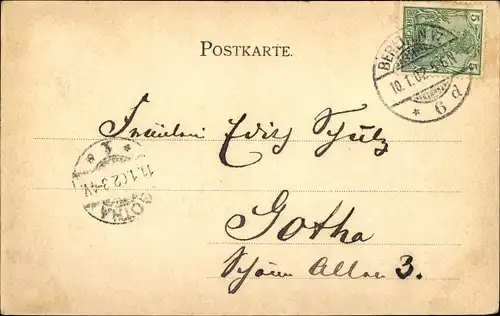 POSTKARTE.
5 5
BERLIN N
10.1.02. 5-6N
* 6 d
Fräulein Edith Schulz
* 1 *
11.1.02.3-4.V.
GOTHA
Gotha
Schöne Allee 3.